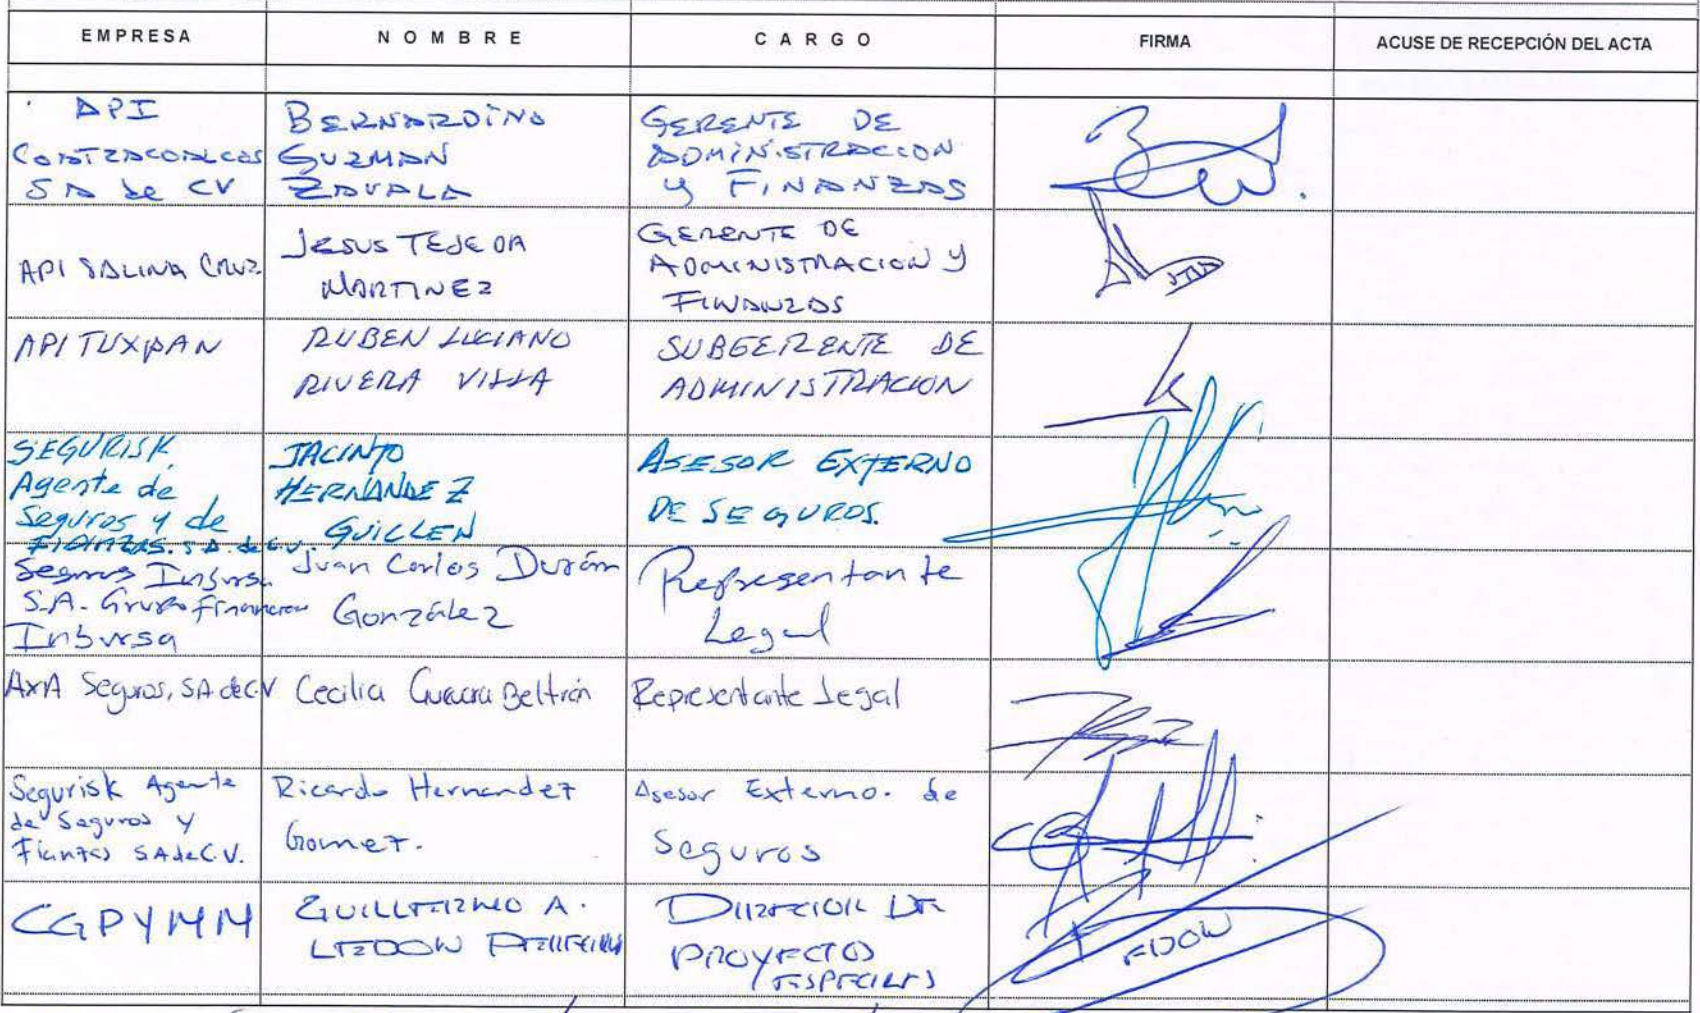 EMPRESA NOMBRE CARGO FIRMA ACUSE DE RECEPCIÓN DEL ACTA
API
COATZACOALCOS
SA de CV
BERNARDINO
GUZMAN
ZAVALA
GERENTE DE
ADMINISTRACCION
y FINANZAS
API SALINA CRUZ
JESUS TEJEDA
MARTINEZ
GERENTE DE
ADMINISTRACION y
FINANZAS
API TUXPAN
RUBEN LUCIANO
RIVERA VILLA
SUBGERENTE DE
ADMINISTRACION
SEGURISK
Agente de
Seguros y de
FIANZAS. S.A. de C.V.
JACINTO
HERNANDEZ
GUILLEN
ASESOR EXTERNO
DE SEGUROS.
Seguros Inbursa
S.A. Grupo Financiero
Inbursa
Juan Carlos Durán
González
Representante
Legal
AXA Seguros, SA de CV
Cecilia Guevara Beltrán
Representante Legal
Segurisk Agente
de Seguros y
Fianzas SA de C.V.
Ricardo Hernandez
Gomez.
Asesor Externo. de
Seguros
CGPYMM
GUILLERMO A.
LEDON
DIRECCION DE
PROYECTOS
ESPECIALES